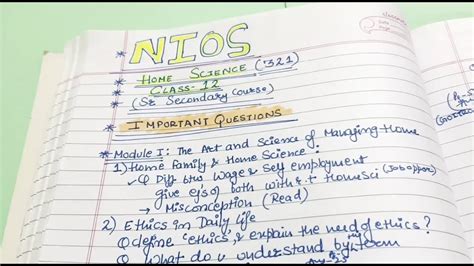 NIOS
* HOME SCIENCE ('321)
* CLASS-12
* (Sr Secondary Course)
* IMPORTANT QUESTIONS
* Module I: The Art and Science of Managing Home
1) Home Family & Home Science:
✓ Q Diff btw Wage & Self employment
give ejs of both with r.t Homesci (Job oppor)
→ Misconception (Read)
2) Ethics in Daily life
Q define 'ethics', & explain the need of ethics?
Q what do u understand by term